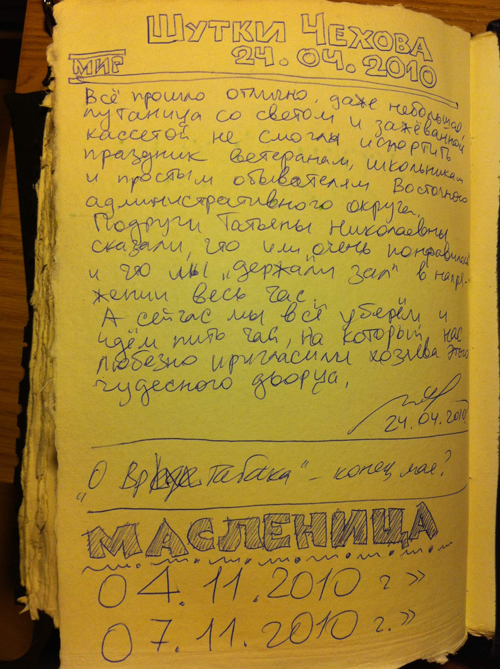 Шутки Чехова
24.04.2010
МИГ
Всё прошло отлично, даже небольшая
путаница со светом и зажёванной
кассетой не смогли испортить
праздник ветеранам, школьникам
и простым обывателям Восточного
административного округа.
Подруги Татьяны Николаевны
сказали, что им очень понравилось
и что мы „держали зал" в напря-
жении весь час.
А сейчас мы всё уберём и
идём пить чай, на который нас
любезно пригласили хозяева этого
чудесного дворца.
24.04.2010
„О табака" – конец мае?
МАСЛЕНИЦА
04.11.2010 г »
07.11.2010 г. »